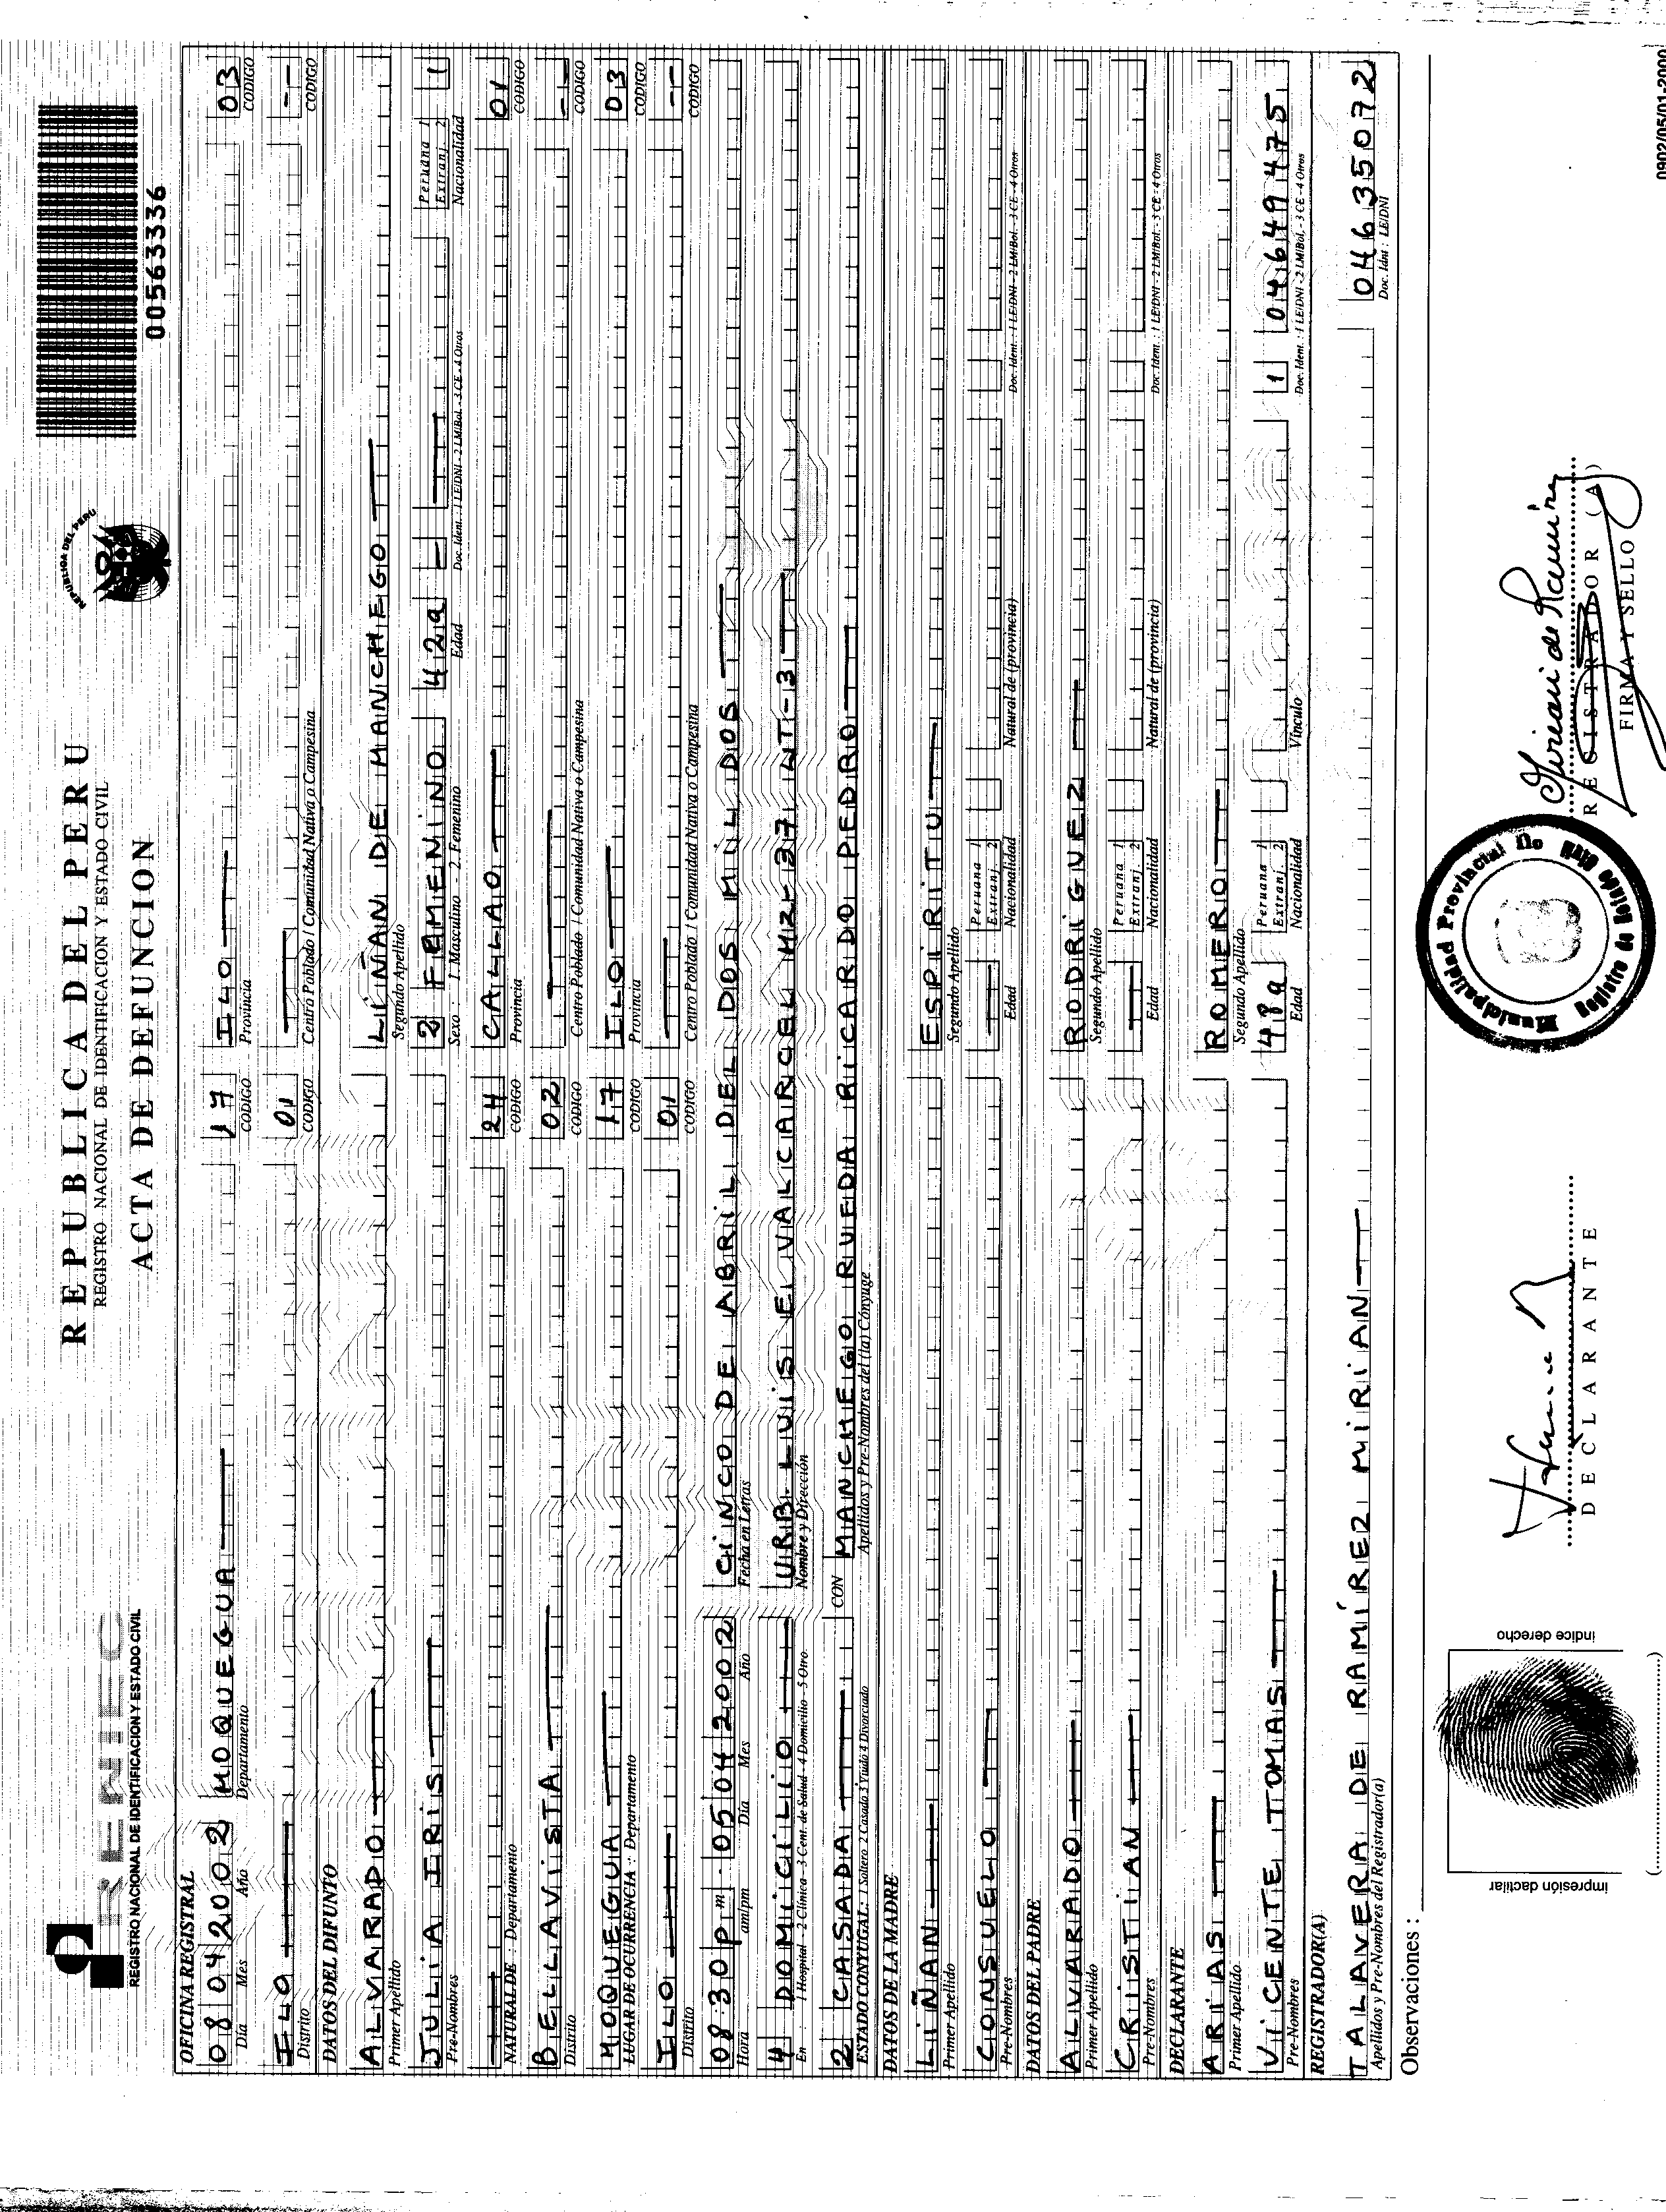 RENIEC
REGISTRO NACIONAL DE IDENTIFICACION Y ESTADO CIVIL
REPUBLICA DEL PERU
REGISTRO NACIONAL DE IDENTIFICACION Y ESTADO CIVIL
ACTA DE DEFUNCION
REPUBLICA DEL PERU
00563336
OFICINA REGISTRAL
08 04 2002 MOQUEGUA 17 ILO 03
Día Mes Año Departamento CODIGO Provincia CODIGO
ILO 01 --
Distrito CODIGO Centro Poblado / Comunidad Nativa o Campesina CODIGO
DATOS DEL DIFUNTO
ALVARADO LIÑAN DE MANCHEGO
Primer Apellido Segundo Apellido
JULIA IRIS 2 FEMENINO 42a - Peruana 1 Extranj. 2 1
Pre-Nombres Sexo : 1. Masculino 2. Femenino Edad Doc. Ident. : 1 LE/DNI - 2 LM/Bol. - 3 CE - 4 Otros Nacionalidad
24 CALLAO 01
NATURAL DE : Departamento CODIGO Provincia CODIGO
BELLAVISTA 02 --
Distrito CODIGO Centro Poblado / Comunidad Nativa o Campesina CODIGO
MOQUEGUA 17 ILO 03
LUGAR DE OCURRENCIA : Departamento CODIGO Provincia CODIGO
ILO 01 --
Distrito CODIGO Centro Poblado / Comunidad Nativa o Campesina CODIGO
08:30 pm 05 04 2002 CINCO DE ABRIL DEL DOS MIL DOS
Hora am/pm Día Mes Año Fecha en Letras
4 DOMICILIO URB. LUIS E VALCARCEL MZ-37 LT-3
En : 1 Hospital - 2 Clínica - 3 Cent. de Salud - 4 Domicilio - 5 Otro Nombre y Dirección
2 CASADA CON MANCHEGO RUEDA RICARDO PEDRO
ESTADO CONYUGAL: 1 Soltero 2 Casado 3 Viudo 4 Divorciado Apellidos y Pre-Nombres del (la) Cónyuge
DATOS DE LA MADRE
LIÑAN ESPIRITU
Primer Apellido Segundo Apellido
CONSUELO Peruana 1 Extranj. 2
Pre-Nombres Edad Nacionalidad Natural de (provincia) Doc. Ident. : 1 LE/DNI - 2 LM/Bol. - 3 CE - 4 Otros
DATOS DEL PADRE
ALVARADO RODRIGUEZ
Primer Apellido Segundo Apellido
CRISTIAN Peruana 1 Extranj. 2
Pre-Nombres Edad Nacionalidad Natural de (provincia) Doc. Ident. : 1 LE/DNI - 2 LM/Bol. - 3 CE - 4 Otros
DECLARANTE
ARIAS ROMERO
Primer Apellido Segundo Apellido
VICENTE TOMAS 48a Peruana 1 Extranj. 2 1 04649475
Pre-Nombres Edad Nacionalidad Vínculo Doc. Ident. : 1 LE/DNI - 2 LM/Bol. - 3 CE - 4 Otros
REGISTRADOR(A)
TALAVERA DE RAMÍREZ MIRIAN 04635072
Apellidos y Pre-Nombres del Registrador(a) Doc. Idnt : LE/DNI
Observaciones :
impresión dactilar
índice derecho
DECLARANTE
Municipalidad Provincial Ilo
Registro de Estado Civil
REGISTRADOR (A)
FIRMA Y SELLO
0902/05/01-2000